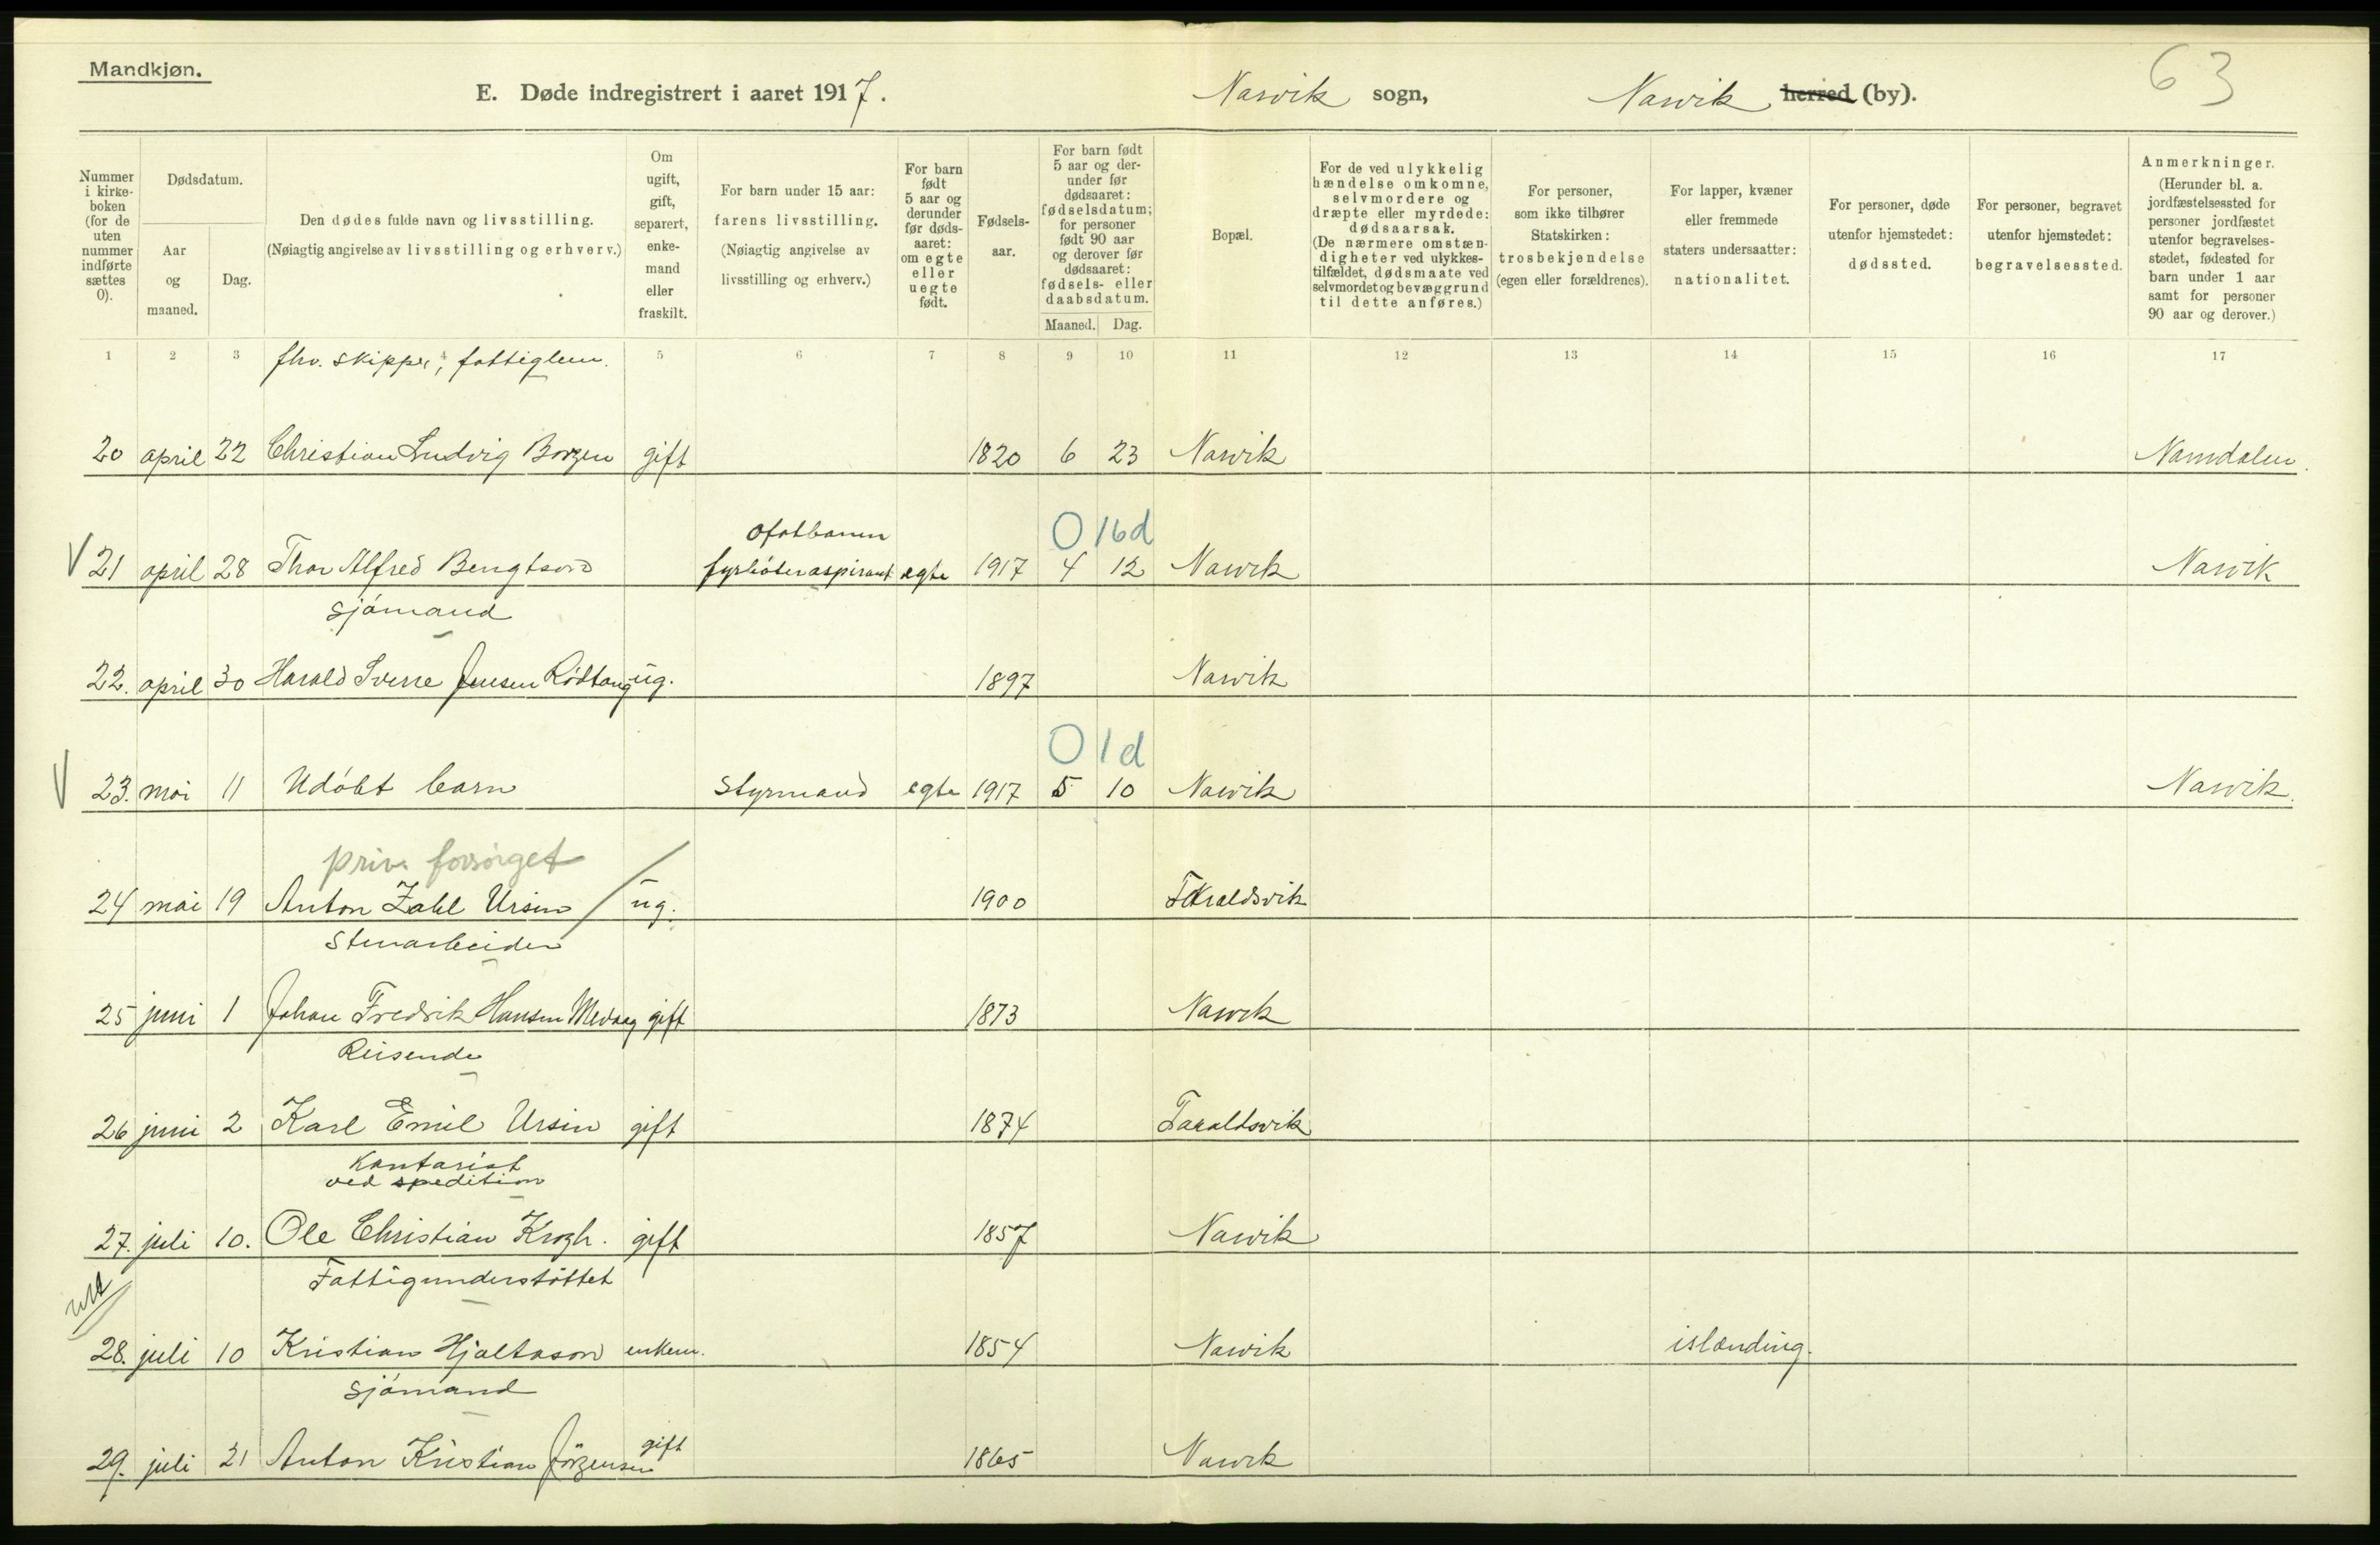 Mandkjøn.
63
E. Døde indregistrert i aaret 1917. Narvik sogn, Narvik herred (by).
Nummer i kirke-boken (for de uten nummer indførte sættes 0).
Dødsdatum.
Aar og maaned.
Dag.
Den dødes fulde navn og livsstilling.
(Nøiagtig angivelse av livsstilling og erhverv.)
Om ugift, gift, separert, enke-mand eller fraskilt.
For barn under 15 aar: farens livsstilling. (Nøiagtig angivelse av livsstilling og erhverv.)
For barn født 5 aar og derunder før døds-aaret: om egte eller uegte født.
Fødsels-aar.
For barn født 5 aar og der-under før dødsaaret: fødselsdatum; for personer født 90 aar og derover før dødsaaret: fødsels- eller daabsdatum.
Maaned. Dag.
Bopæl.
For de ved ulykkelig hændelse omkomne, selvmordere og dræpte eller myrdede: dødsaarsak. (De nærmere omstæn-digheter ved ulykkes-tilfældet, dødsmaate ved selvmordet og bevæggrund til dette anføres.)
For personer, som ikke tilhører Statskirken: trosbekjendelse (egen eller forældrenes).
For lapper, kvæner eller fremmede staters undersaatter: nationalitet.
For personer, døde utenfor hjemstedet: dødssted.
For personer, begravet utenfor hjemstedet: begravelsessted.
Anmerkninger. (Herunder bl. a. jordfæstelsessted for personer jordfæstet utenfor begravelses-stedet, fødested for barn under 1 aar samt for personer 90 aar og derover.)
1 2 3 4 5 6 7 8 9 10 11 12 13 14 15 16 17
fhv. skipper, fattiglem.
20 april 22 Christian Ludvig Borgen gift 1820 6 23 Narvik Namdalen.
Ofotbanen 0 16d
V 21 april 28 Thor Alfred Bengtson fyrbøteraspirant egte 1917 4 12 Narvik Narvik
sjómand
22. april 30 Harald Sverre Jensen Rödtang ug. 1897 Narvik
0 1d
V 23. mai 11 Udóbt barn Styrmand egte 1917 5 10 Narvik Narvik.
priv. forsörget
24 mai 19 Anton Zahl Ursin ug. 1900 Faraldsvik
Stenarbeider
25 juni 1 Johan Fredrik Hansen gift 1873 Narvik
Reisende
26 juni 2 Karl Emil Ursin gift 1874 Faraldsvik
Kontorist
ved spedition
27. juli 10. Ole Christian Krogh. gift 1857 Narvik
Fattigunderstöttet
28. juli 10 Kristian Hjaltason enkem. 1854 Narvik islænding.
sjómand
29. juli 21 Anton Kristian Jörgensen gift 1865 Narvik